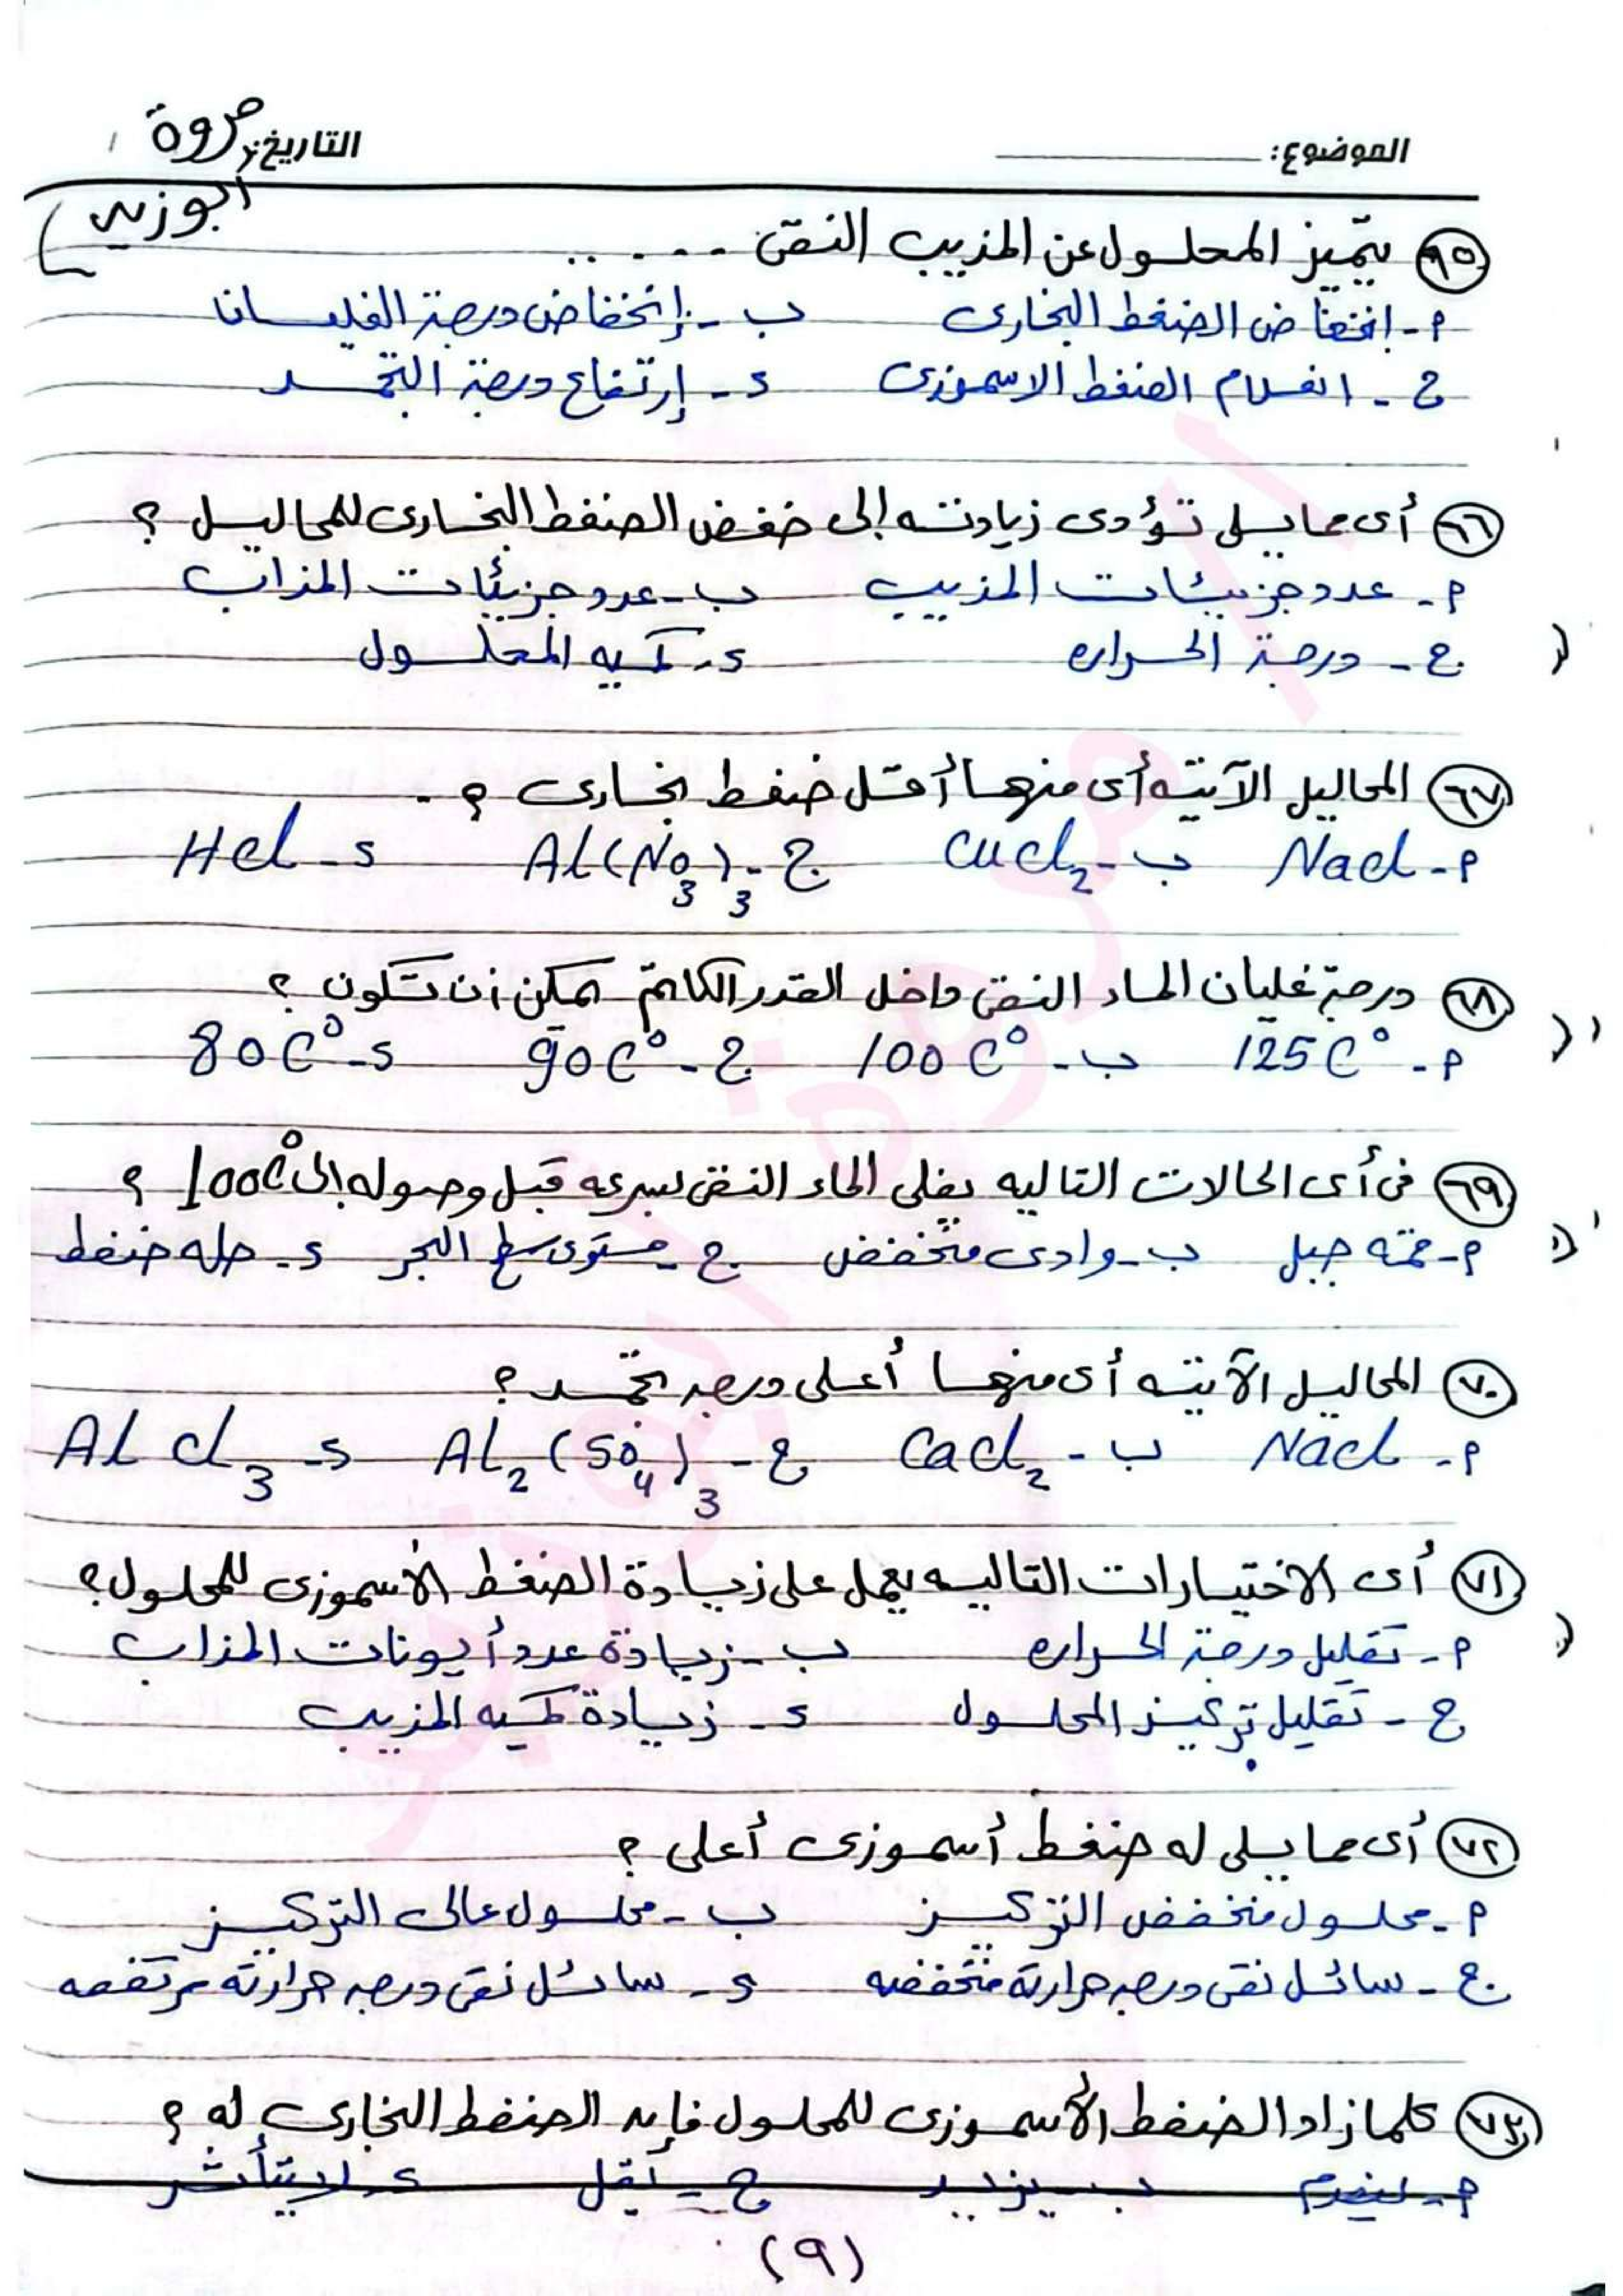 الموضوع:
التاريخ: مروة
أبوزيد
٦٥ يتميز المحلول عن المذيب النقى .....
م- انخفاض الضغط البخارى ب- إنخفاض درجة الغليان
ج- انعدام الضغط الاسموزى د- إرتفاع درجة التجمد
٦٦ أى مما يلى تؤدى زيادته إلى خفض الضغط البخارى للمحاليل ؟
م- عدد جزيئات المذيب ب- عدد جزيئات المذاب
ج- درجة الحراره د- كميه المحلول
٦٧ المحاليل الآتيه أى منها أقل ضغط بخارى ؟
م- Nacl ب- Cucl₂ ج- Al(No₃)₃ د- Hcl
٦٨ درجة غليان الماء النقى داخل القدر الكاتم يمكن أن تكون ؟
م- 125C° ب- 100C° ج- 90C° د- 80C°
٦٩ فى أى الحالات التاليه يغلى الماء النقى بسرعه قبل وصوله إلى 100C° ؟
م- قمه جبل ب- وادى منخفض ج- مستوى سطح البحر د- حله ضغط
٧٠ المحاليل الآتيه أى منها أعلى درجه تجمد ؟
م- Nacl ب- Cacl₂ ج- Al₂(So₄)₃ د- Alcl₃
٧١ أى الاختيارات التاليه يعمل على زيادة الضغط الأسموزى للمحلول؟
م- تقليل درجة الحراره ب- زيادة عدد أيونات المذاب
ج- تقليل تركيز المحلول د- زيادة كميه المذيب
٧٢ أى مما يلى له ضغط أسموزى أعلى ؟
م- محلول منخفض التركيز ب- محلول عالى التركيز
ج- سائل نقى درجه حرارته منخفضه د- سائل نقى درجه حرارته مرتفعه
٧٣ كلما زاد الضغط الأسموزى للمحلول فإن الضغط البخارى له ؟
م- ينعدم ب- يزيد ج- يقل د- لا يتأثر
(٩)